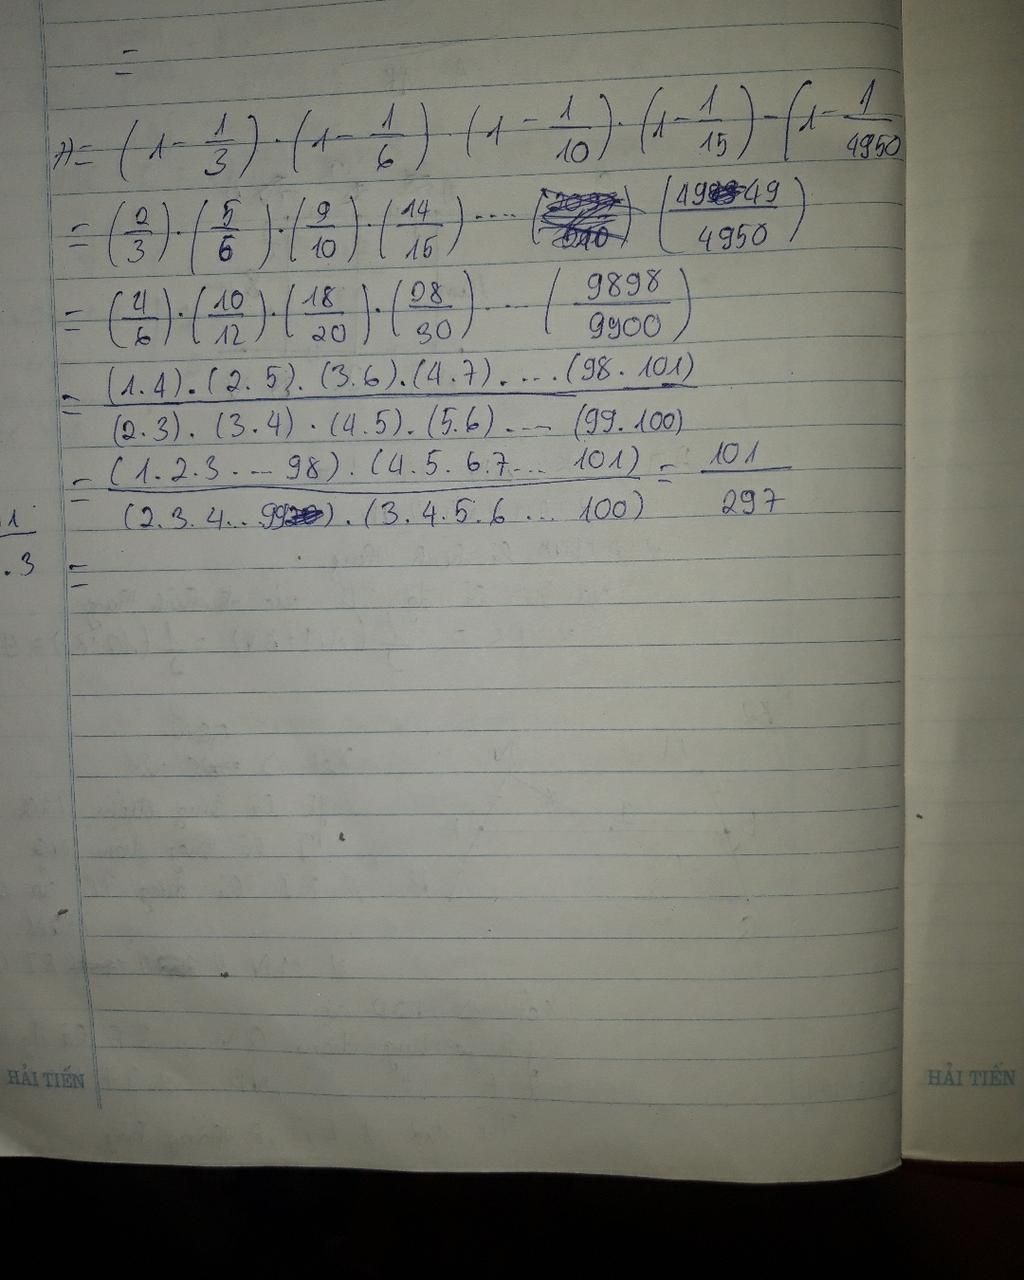 =
A = (1 - 1/3) . (1 - 1/6) . (1 - 1/10) . (1 - 1/15) - (1 - 1/4950
= (2/3) . (5/6) . (9/10) . (14/15) .... (4949/4950)
= (4/6) . (10/12) . (18/20) . (28/30) .... (9898/9900)
= (1.4) . (2.5) . (3.6) . (4.7) .... (98.101) / (2.3) . (3.4) . (4.5) . (5.6) .... (99.100)
= (1.2.3 ... 98) . (4.5.6.7... 101) / (2.3.4... 99) . (3.4.5.6 ... 100) = 101/297
1
. 3
=
HẢI TIẾN
HẢI TIẾN